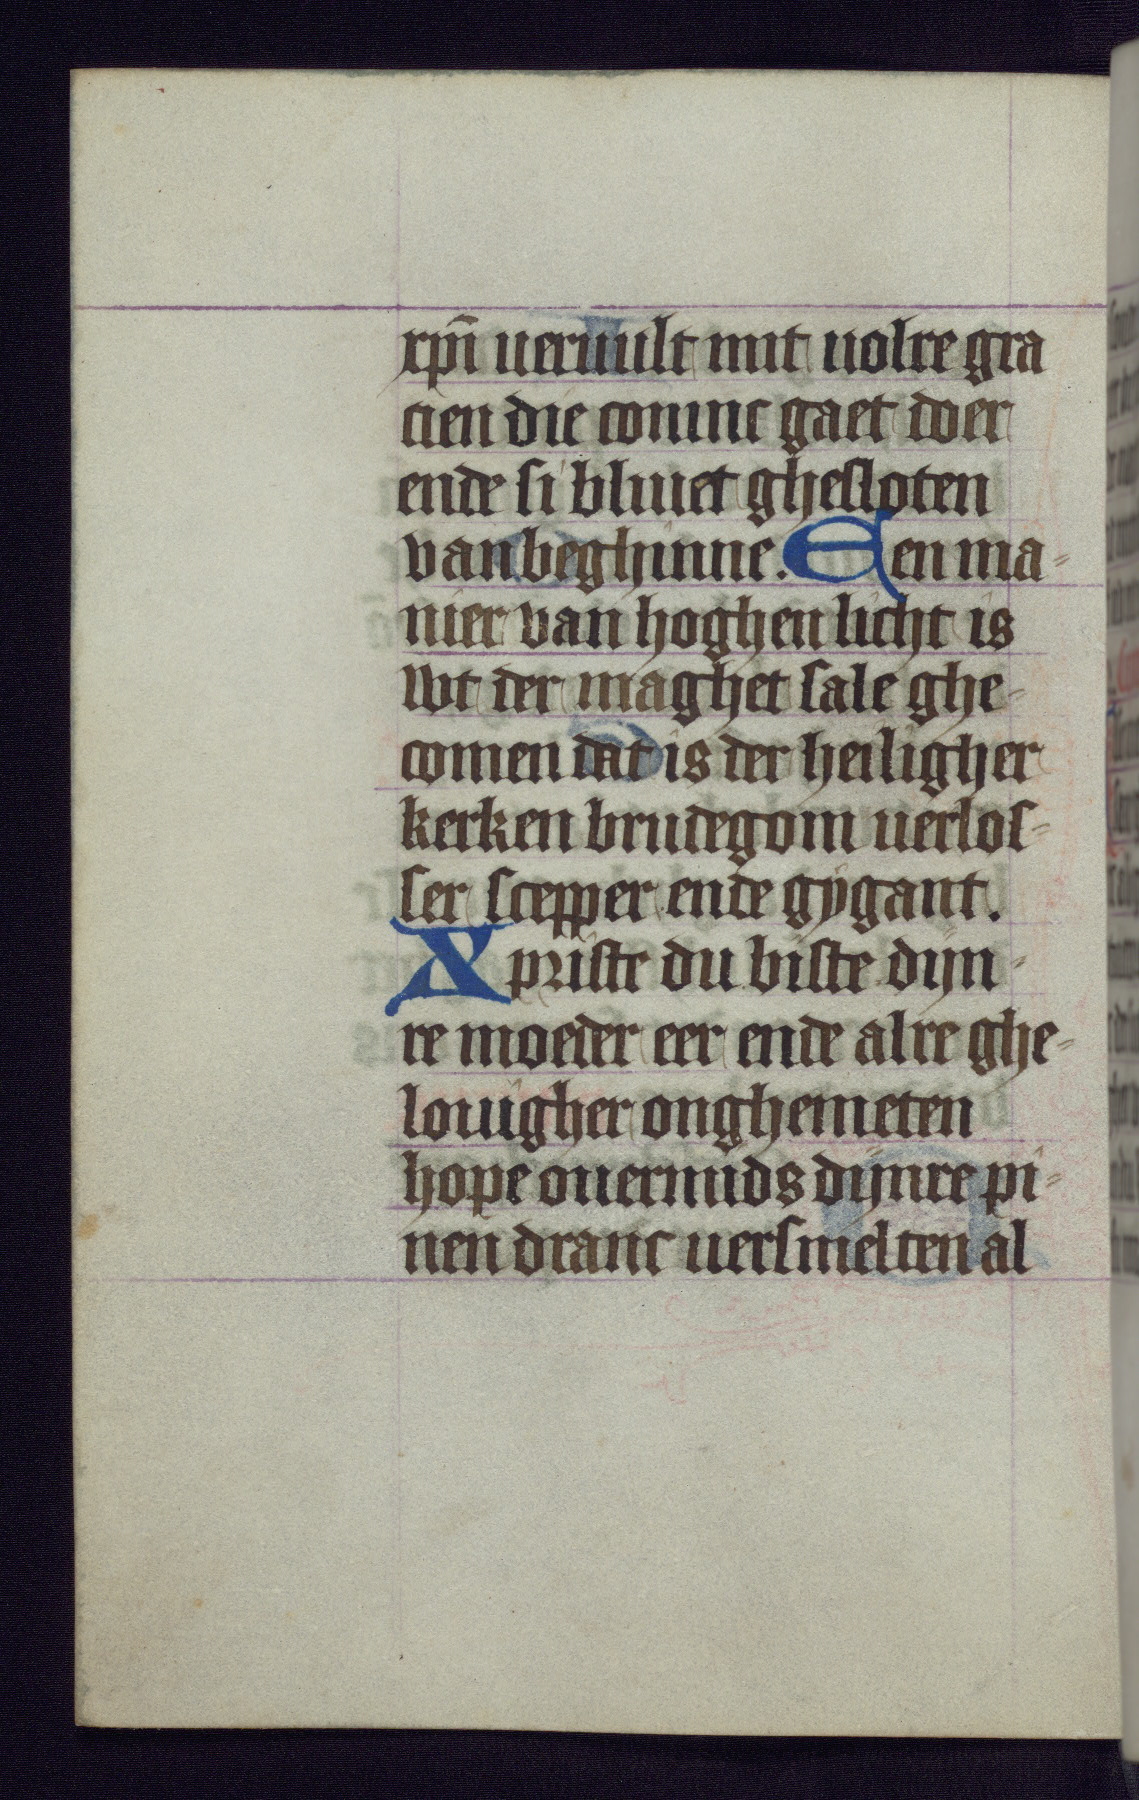 xpi̅ veruult mit volre gra
cien die coninc gaet doer
ende si bliuet ghesloten
van beghinne. Een ma-
nier van hoghen licht is
wt der maghet sale ghe-
comen dat is der heiligher
kerken brudegom verlos-
ser scepper ende gygant.
Xpriste du biste dijn-
re moeder eer ende alre ghe-
louigher onghemeten
hope ouermids dijnre pi-
nen dranc versmelten al